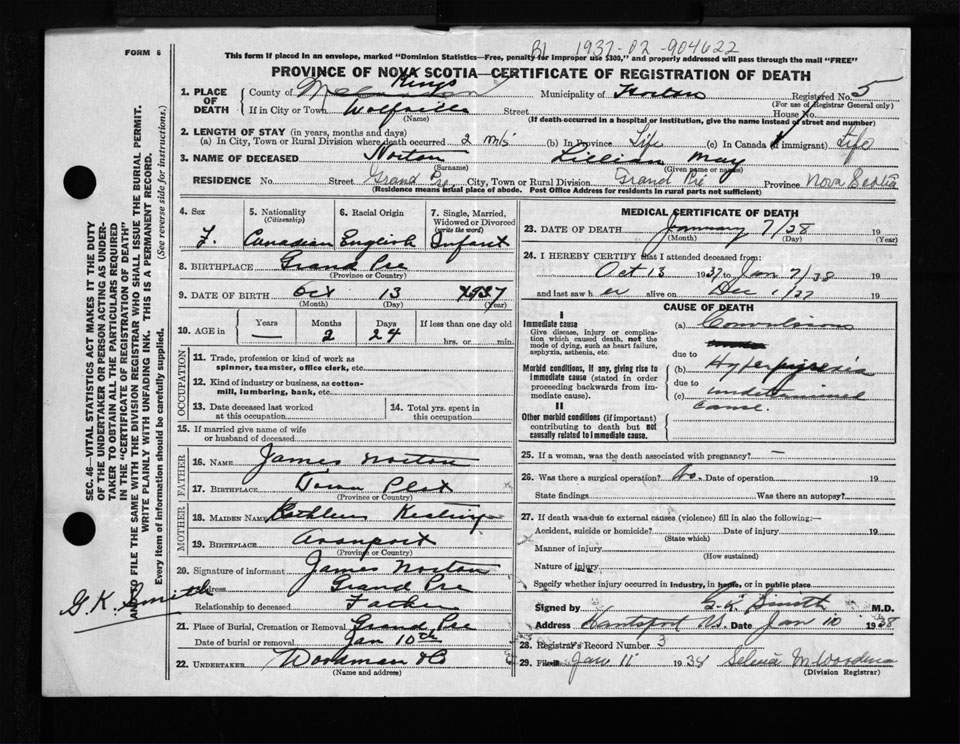 FORM 6
This form if placed in an envelope, marked "Dominion Statistics—Free, penalty for improper use $300," and properly addressed will pass through the mail "FREE"
1937-02-904622
PROVINCE OF NOVA SCOTIA—CERTIFICATE OF REGISTRATION OF DEATH
1. PLACE OF DEATH County of Kings Municipality of Horton Registered No. 5
(For use of Registrar General only)
If in City or Town Wolfville Street House No.
(Name) (If death occurred in a hospital or institution, give the name instead of street and number)
2. LENGTH OF STAY (in years, months and days)
(a) In City, Town or Rural Division where death occurred 2 m/s (b) In Province Life (c) In Canada (if immigrant) Life
3. NAME OF DECEASED Norton Lillian May
(Surname) (Given name or names)
RESIDENCE No. Street Grand Pre City, Town or Rural Division Grand Pré Province Nova Scotia
(Residence means usual place of abode. Post Office Address for residents in rural parts not sufficient)
4. Sex 5. Nationality 6. Racial Origin 7. Single, Married, Widowed or Divorced
(Citizenship) (write the word)
F. Canadian English Infant
8. BIRTHPLACE Grand Pre
(Province or Country)
9. DATE OF BIRTH Oct 13 1937
(Month) (Day) (Year)
10. AGE in Years Months Days If less than one day old
— 2 24 hrs. or min.
OCCUPATION
11. Trade, profession or kind of work as spinner, teamster, office clerk, etc.
12. Kind of industry or business, as cotton-mill, lumbering, bank, etc.
13. Date deceased last worked at this occupation 14. Total yrs. spent in this occupation
15. If married give name of wife or husband of deceased
FATHER
16. NAME James Norton
17. BIRTHPLACE Town Plot
(Province or Country)
MOTHER
18. MAIDEN NAME Kathleen
19. BIRTHPLACE Avonport
(Province or Country)
20. Signature of informant James Norton
Address Grand Pre
Relationship to deceased Father
21. Place of Burial, Cremation or Removal Grand Pre
Date of burial or removal Jan 10th
22. UNDERTAKER Woodman & Co
(Name and address)
MEDICAL CERTIFICATE OF DEATH
23. DATE OF DEATH January 7/38 19
(Month) (Day) (Year)
24. I HEREBY CERTIFY that I attended deceased from:
Oct 13 1937 to Jan 7/38 19
and last saw h er alive on Dec 1/37 19
CAUSE OF DEATH
I
Immediate cause (a) Convulsions
Give disease, injury or complication which caused death, not the mode of dying, such as heart failure, asphyxia, asthenia, etc.
due to
Morbid conditions, if any, giving rise to immediate cause (stated in order proceeding backwards from immediate cause). (b) Hyperpyrexia
due to
(c) undetermined
cause.
II
Other morbid conditions (if important) contributing to death but not causally related to immediate cause.
25. If a woman, was the death associated with pregnancy? —
26. Was there a surgical operation? No. Date of operation 19
State findings Was there an autopsy?
27. If death was due to external causes (violence) fill in also the following:—
Accident, suicide or homicide? Date of injury 19
(State which)
Manner of injury
(How sustained)
Nature of injury
Specify whether injury occurred in industry, in home, or in public place
Signed by G. K. Smith M.D.
Address Hantsport N.S. Date Jan 10 1938
28. Registrar's Record Number 3
29. Filed Jan 11 1938 Selena M Woodman
(Division Registrar)
SEC. 46—VITAL STATISTICS ACT MAKES IT THE DUTY
OF THE UNDERTAKER OR PERSON ACTING AS UNDER-
TAKER TO OBTAIN ALL THE PARTICULARS REQUIRED
IN THE "CERTIFICATE OF REGISTRATION OF DEATH"
AND TO FILE THE SAME WITH THE DIVISION REGISTRAR WHO SHALL ISSUE THE BURIAL PERMIT.
WRITE PLAINLY WITH UNFADING INK. THIS IS A PERMANENT RECORD.
Every item of information should be carefully supplied. (See reverse side for instructions.)
G. K. Smith